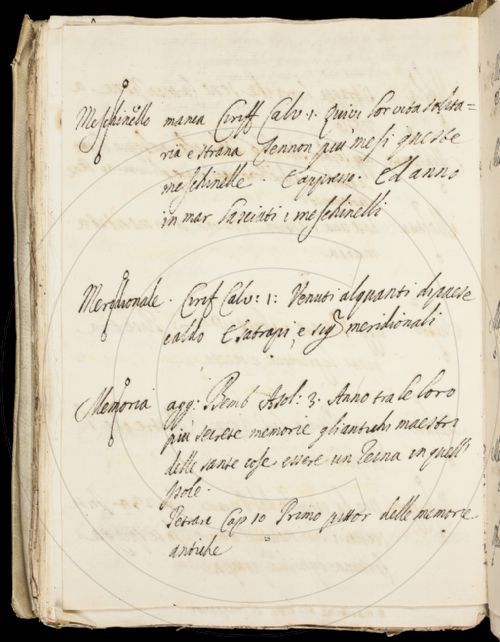 Meschinello manca Ciriff Calv: 1: Quivi lor vita solita=
ria e strana Tennon piu mesi queste
meschinelle. E appresso. Ed anno
in mar lasciati i meschinelli
Meridionale. Cirif Calv: 1: Venuti alquanti di paese
caldo E satrapi, e sig.ri meridionali
Memoria agg: Bemb Asol: 3: Anno tra le loro
piu secrete memorie gli antichi maestri
delle sante cose essere una Reina in quell'
Isole.
Petrarc Cap 10 Primo pittor delle memorie
antiche